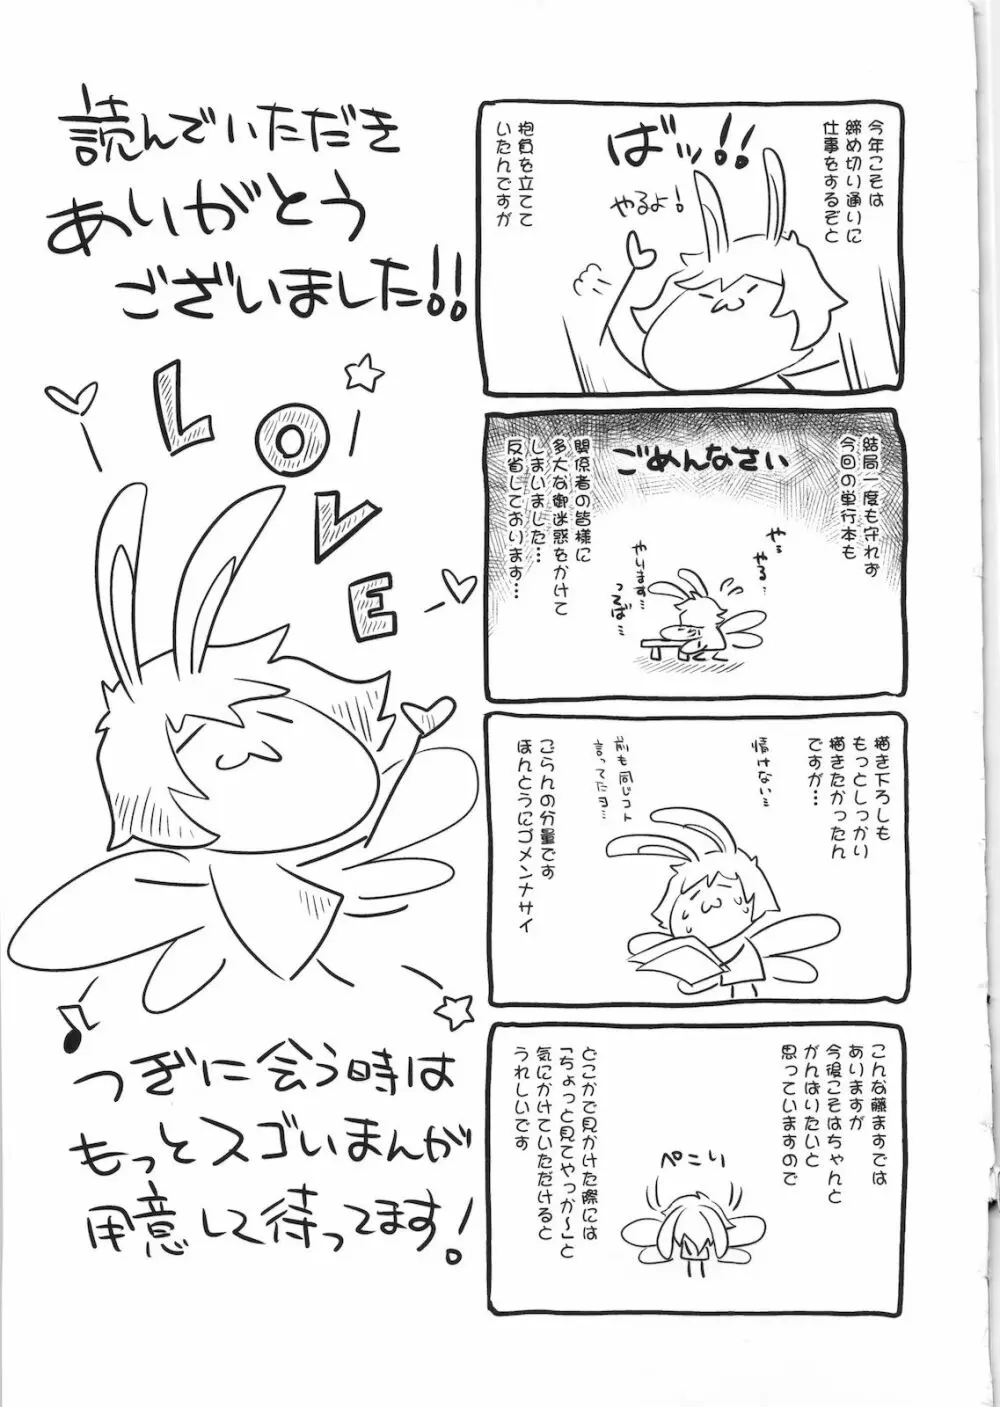 今年こそは
締め切り通りに
仕事をするぞと
ばッ!!
やるよ!
抱負を立てて
いたんですが
結局一度も守れず
今回の単行本も
ごめんなさい
関係者の皆様に
多大な御迷惑をかけて
しまいました…
反省しております…
やっ
やる…
やります…
描き下ろしも
もっとしっかり
描きたかったん
ですが…
情けない…
前も同じコト
言ってたヨ…
ごらんの分量です
ほんとうにゴメンナサイ
こんな藤ますでは
ありますが
今後こそはちゃんと
がんばりたいと
思っていますので
ぺこり
どこかで見かけた際には
「ちょっと見てやっか〜」と
気にかけていただけると
うれしいです
読んでいただき
ありがとう
ございました!!
LOVE
つぎに会う時は
もっとスゴいまんが
用意して待ってます!